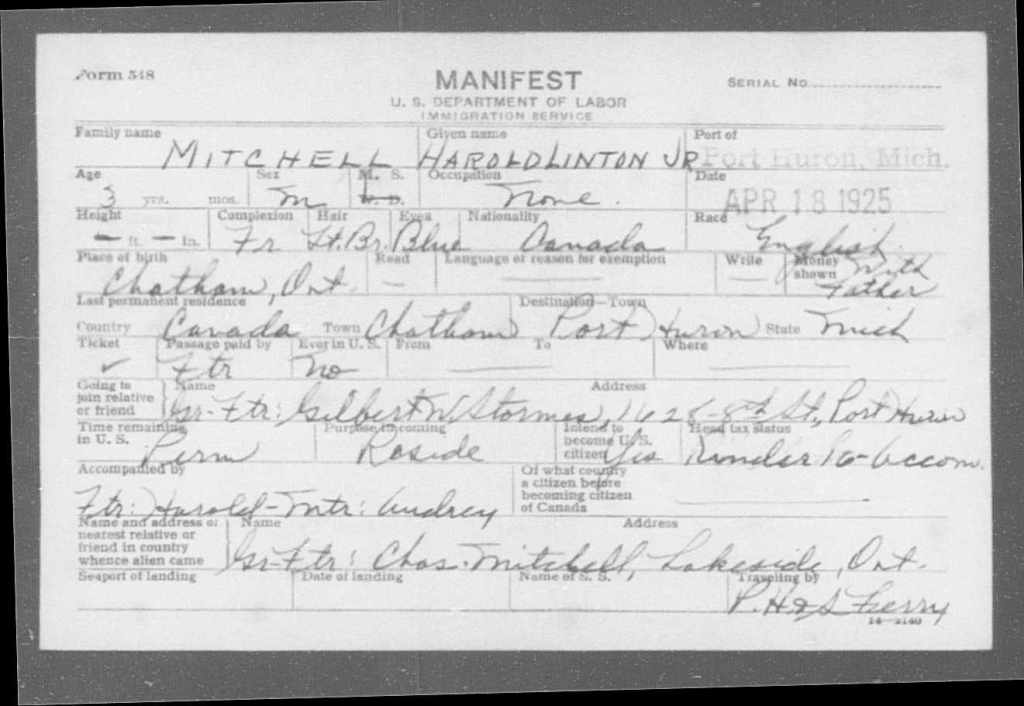 Form 548
MANIFEST
SERIAL No.
U. S. DEPARTMENT OF LABOR
IMMIGRATION SERVICE
Family name Given name Port of
MITCHELL HAROLD LINTON JR Port Huron, Mich.
Age Sex M. S. Occupation Date
3 yrs. mos. m None. APR 18 1925
Height Complexion Hair Eyes Nationality Race
— ft. — in. Fr Lt. Br. Blue Canada English.
Place of birth Read Language or reason for exemption Write Money shown
Chatham, Ont. — — — With Father
Last permanent residence Destination—Town
Country Canada Town Chatham Port Huron State Mich
Ticket Passage paid by Ever in U. S. From To Where
✓ Ftr No
Going to join relative or friend Name Address
Gr-Ftr: Gilbert W Stormes, 1628-8th St., Port Huron
Time remaining in U. S. Purpose in coming Intend to become U. S. citizen Head tax status
Perm Reside Yes Under 16-Accom.
Accompanied by Of what country a citizen before becoming citizen of Canada
Ftr: Harold-Mtr: Audrey
Name and address of nearest relative or friend in country whence alien came Name Address
Gr-Ftr: Chas. Mitchell, Lakeside, Ont.
Seaport of landing Date of landing Name of S. S. Traveling by
P.H&S Ferry
14—2140